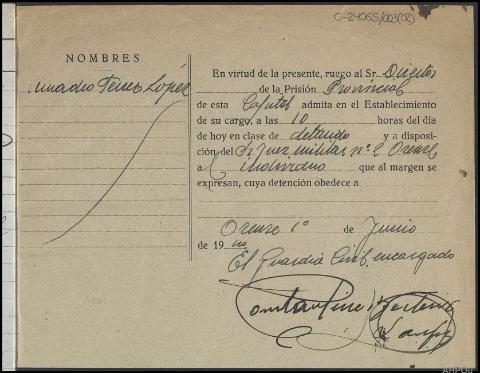 C-24065/003(02)
NOMBRES
Amadeo López
En virtud de la presente, ruego al Sr. Director
de la Prisión Provincial
de esta Capital admita en el Establecimiento
de su cargo, a las 10 horas del día
de hoy en clase de detenido y a disposi-
ción del Sr Juez militar nº 2 Orense
a individuo que al margen se
expresan, cuya detención obedece a
Orense 1º de Junio
de 19
El Guardia Civil encargado
AHPOu